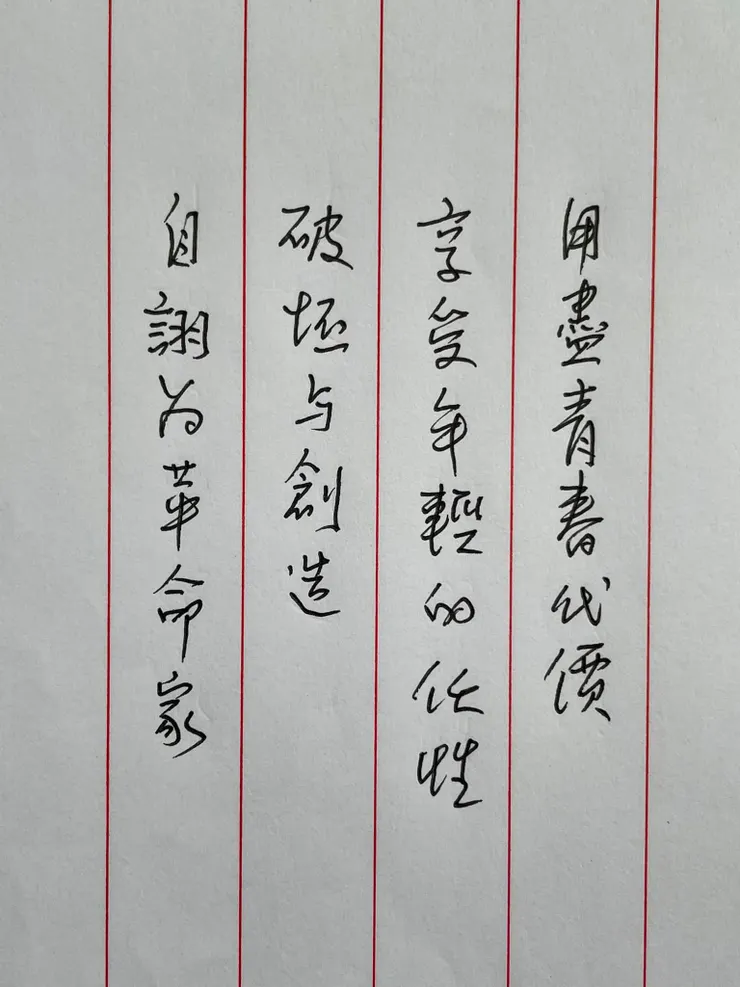 用盡青春代價
享受年輕的任性
破坯与創造
自詡为革命家